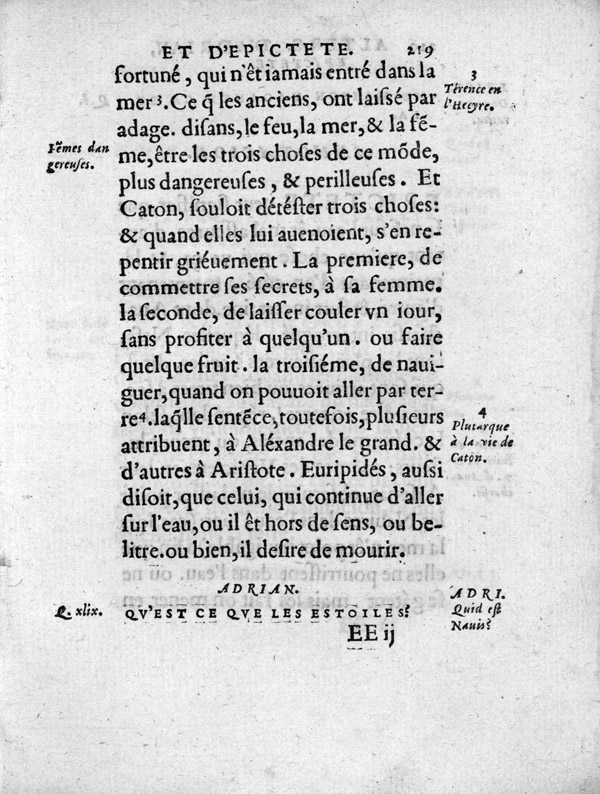 ET D'EPICTETE. 219
fortuné, qui n'êt iamais entré dans la
mer ³. Ce q̃ les anciens, ont laiſſé par
adage. diſans, le feu, la mer, & la fẽ-
me, être les trois choſes de ce mõde,
plus dangereuſes, & perilleuſes. Et
Caton, ſouloit détéſter trois choſes:
& quand elles lui auenoient, s'en re-
pentir griéuement. La premiere, de
commettre ſes ſecrets, à ſa femme.
la ſeconde, de laiſſer couler vn iour,
ſans profiter à quelqu'un. ou faire
quelque fruit. la troiſiéme, de naui-
guer, quand on pouuoit aller par ter-
re⁴. laq̃lle ſentẽce, toutefois, pluſieurs
attribuent, à Aléxandre le grand. &
d'autres à Ariſtote. Euripidés, auſsi
diſoit, que celui, qui continue d'aller
ſur l'eau, ou il êt hors de ſens, ou be-
litre. ou bien, il deſire de mourir.
3
Térence en
l'Hecyre.
Fẽmes dan
gereuſes.
4
Plutarque
à la vie de
Caton.
ADRIAN.
Q. xlix. QV'EST CE QVE LES ESTOILES?
ADRI.
Quid eſt
Nauis?
EE ij